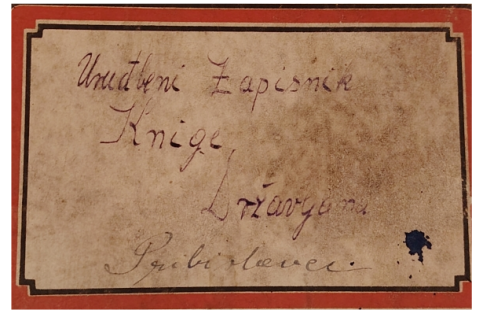 Urudbeni Zapisnik
Knige
Državljana
Pribislavec.